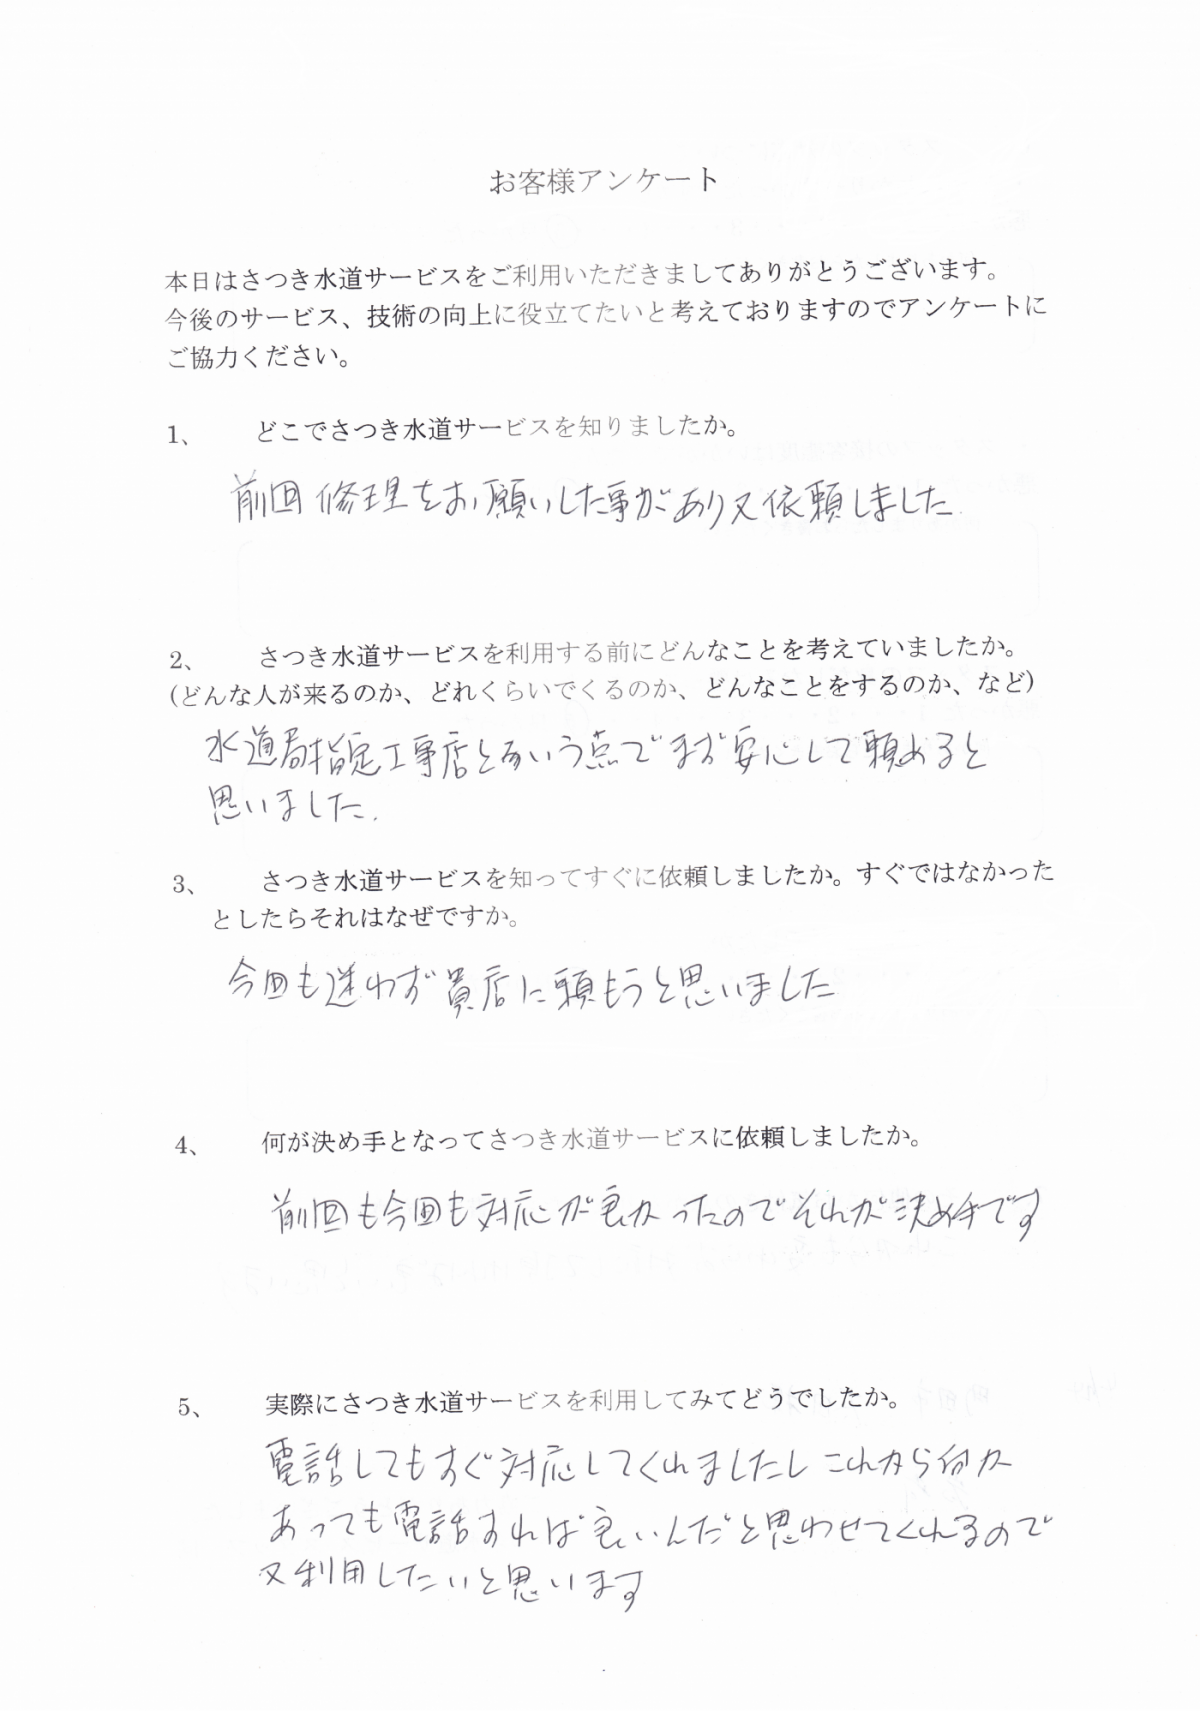 お客様アンケート
本日はさつき水道サービスをご利用いただきましてありがとうございます。
今後のサービス、技術の向上に役立てたいと考えておりますのでアンケートに
ご協力ください。
1、 どこでさつき水道サービスを知りましたか。
前回修理をお願いした事があり又依頼しました
2、 さつき水道サービスを利用する前にどんなことを考えていましたか。
(どんな人が来るのか、どれくらいでくるのか、どんなことをするのか、など)
水道局指定工事店という点でまず安心して頼めると
思いました.
3、 さつき水道サービスを知ってすぐに依頼しましたか。すぐではなかった
としたらそれはなぜですか。
今回も迷わず貴店に頼もうと思いました
4、 何が決め手となってさつき水道サービスに依頼しましたか。
前回も今回も対応が良かったのでそれが決め手です
5、 実際にさつき水道サービスを利用してみてどうでしたか。
電話してもすぐ対応してくれましたしこれから何か
あっても電話すれば良いんだと思わせてくれるので
又利用したいと思います